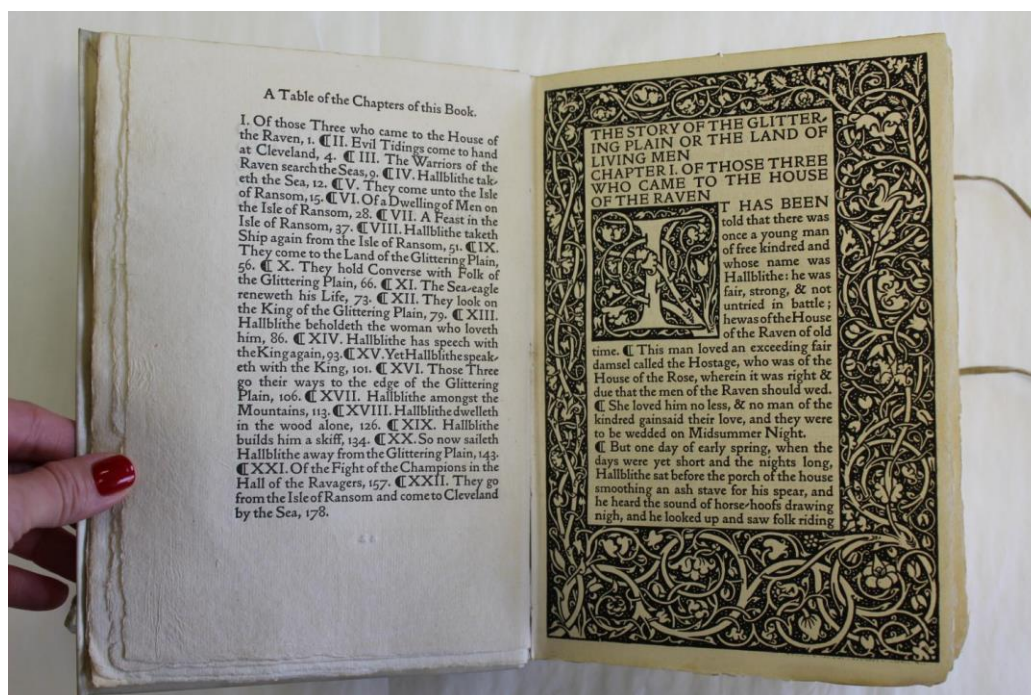 A Table of the Chapters of this Book.
I. Of those Three who came to the House of
the Raven, 1. ⁋ II. Evil Tidings come to hand
at Cleveland, 4. ⁋ III. The Warriors of the
Raven search the Seas, 9. ⁋ IV. Hallblithe tak-
eth the Sea, 12. ⁋ V. They come unto the Isle
of Ransom, 15. ⁋ VI. Of a Dwelling of Men on
the Isle of Ransom, 28. ⁋ VII. A Feast in the
Isle of Ransom, 37. ⁋ VIII. Hallblithe taketh
Ship again from the Isle of Ransom, 51. ⁋ IX.
They come to the Land of the Glittering Plain,
56. ⁋ X. They hold Converse with Folk of
the Glittering Plain, 66. ⁋ XI. The Sea-eagle
reneweth his Life, 73. ⁋ XII. They look on
the King of the Glittering Plain, 79. ⁋ XIII.
Hallblithe beholdeth the woman who loveth
him, 86. ⁋ XIV. Hallblithe has speech with
the King again, 93. ⁋ XV. Yet Hallblithe speak-
eth with the King, 101. ⁋ XVI. Those Three
go their ways to the edge of the Glittering
Plain, 106. ⁋ XVII. Hallblithe amongst the
Mountains, 113. ⁋ XVIII. Hallblithe dwelleth
in the wood alone, 126. ⁋ XIX. Hallblithe
builds him a skiff, 134. ⁋ XX. So now saileth
Hallblithe away from the Glittering Plain, 143.
⁋ XXI. Of the Fight of the Champions in the
Hall of the Ravagers, 157. ⁋ XXII. They go
from the Isle of Ransom and come to Cleveland
by the Sea, 178.
THE STORY OF THE GLITTER-
ING PLAIN OR THE LAND OF
LIVING MEN
CHAPTER I. OF THOSE THREE
WHO CAME TO THE HOUSE
OF THE RAVEN
IT HAS BEEN
told that there was
once a young man
of free kindred and
whose name was
Hallblithe: he was
fair, strong, & not
untried in battle;
he was of the House
of the Raven of old
time. ⁋ This man loved an exceeding fair
damsel called the Hostage, who was of the
House of the Rose, wherein it was right &
due that the men of the Raven should wed.
⁋ She loved him no less, & no man of the
kindred gainsaid their love, and they were
to be wedded on Midsummer Night.
⁋ But one day of early spring, when the
days were yet short and the nights long,
Hallblithe sat before the porch of the house
smoothing an ash stave for his spear, and
he heard the sound of horse-hoofs drawing
nigh, and he looked up and saw folk riding